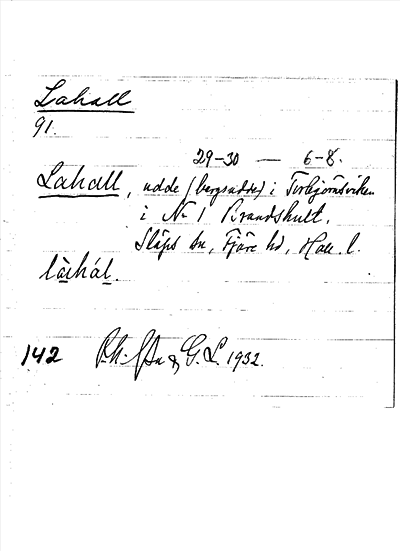 Lahall
91.
29-30 — 6-8.
Lahall, udde (bergsudde) i Torbjörnsviken
i Nr 1 Brandshult.
Släps sn, Fjäre hd, Hall. l.
làihál.
142 & G. L. 1932.